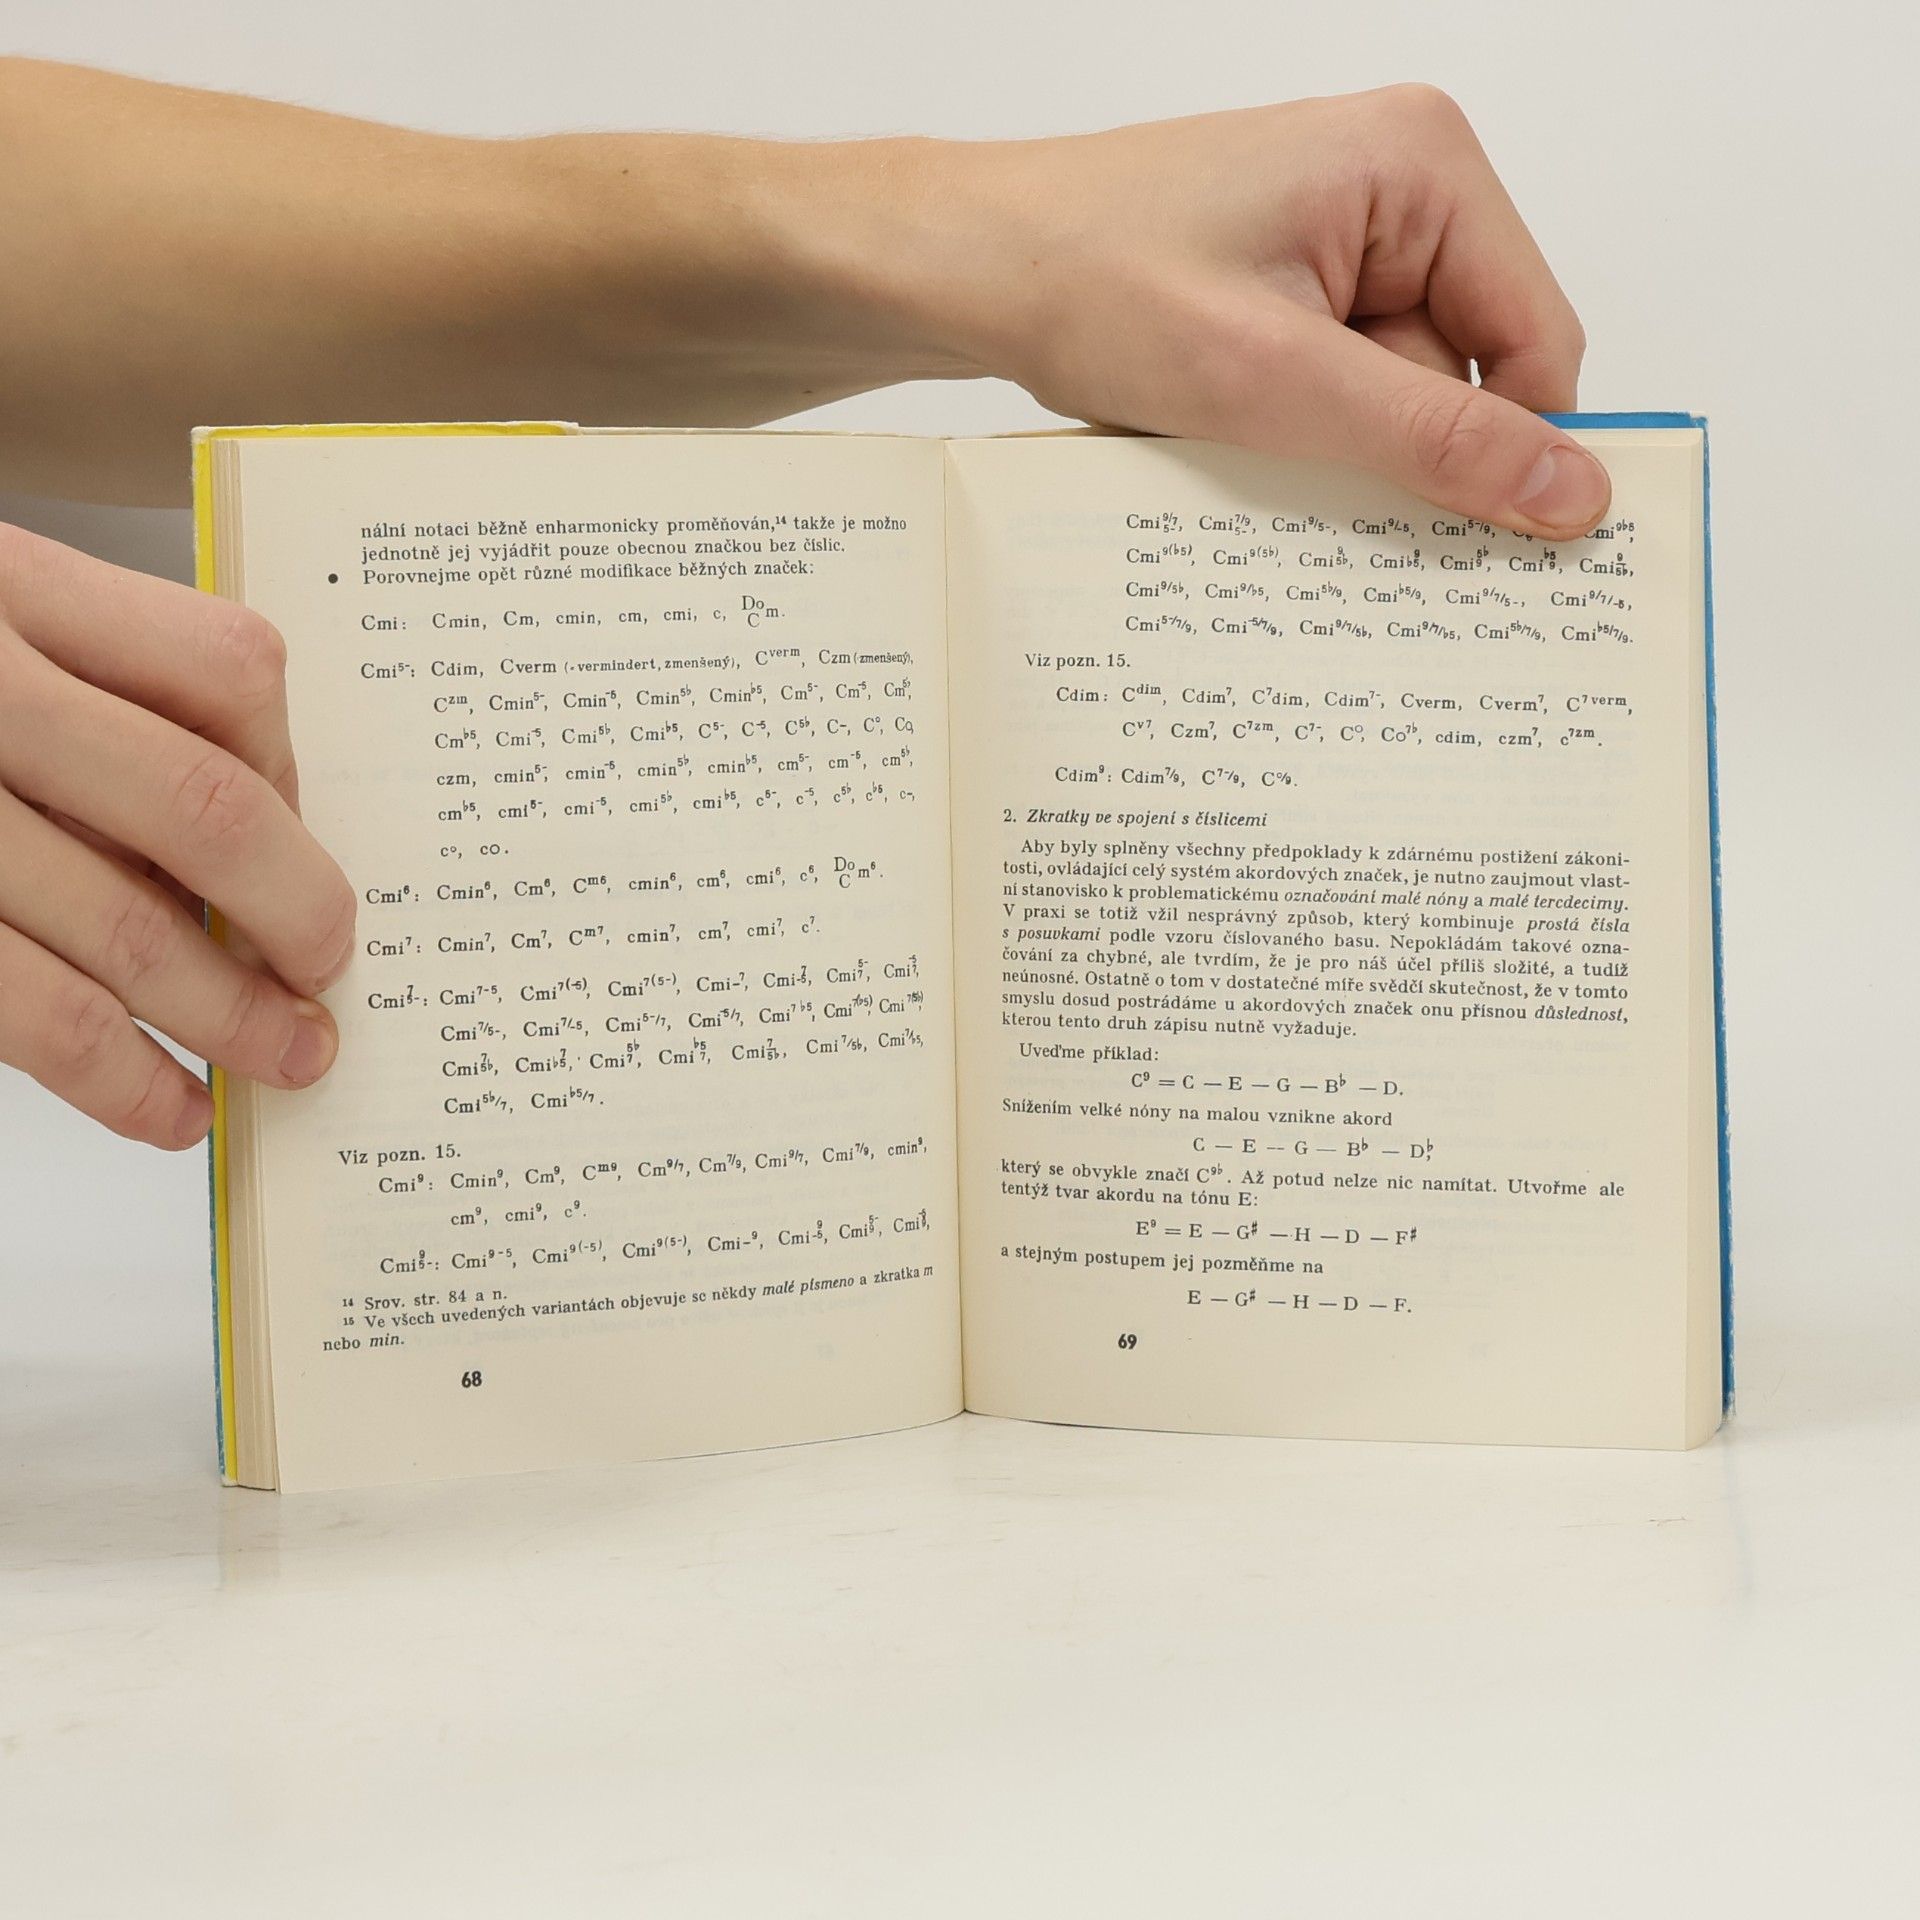 nální notaci běžně enharmonicky proměňován,¹⁴ takže je možno
jednotně jej vyjádřit pouze obecnou značkou bez číslic.
● Porovnejme opět různé modifikace běžných značek:
Cmi: Cmin, Cm, cmin, cm, cmi, c, Do/C m.
Cmi⁵⁻: Cdim, Cverm (-vermindert, zmenšený), Cᵛᵉʳᵐ, Czm (zmenšený),
Cᶻᵐ, Cmin⁵⁻, Cmin⁻⁵, Cmin⁵♭, Cmin♭⁵, Cm⁵⁻, Cm⁻⁵, Cm⁵♭,
Cm♭⁵, Cmi⁻⁵, Cmi⁵♭, Cmi♭⁵, C⁵⁻, C⁻⁵, C⁵♭, C-, C°, Co,
czm, cmin⁵⁻, cmin⁻⁵, cmin⁵♭, cmin♭⁵, cm⁵⁻, cm⁻⁵, cm⁵♭,
cm♭⁵, cmi⁵⁻, cmi⁻⁵, cmi⁵♭, cmi♭⁵, c⁵⁻, c⁻⁵, c⁵♭, c♭⁵, c-,
c°, co.
Cmi⁶: Cmin⁶, Cm⁶, Cᵐ⁶, cmin⁶, cm⁶, cmi⁶, c⁶, Do/C m⁶.
Cmi⁷: Cmin⁷, Cm⁷, Cᵐ⁷, cmin⁷, cm⁷, cmi⁷, c⁷.
Cmi7/5-: Cmi⁷⁻⁵, Cmi⁷⁽⁻⁵⁾, Cmi⁷⁽⁵⁻⁾, Cmi-⁷, Cmi7/-5, Cmi5-/7, Cmi-5/7,
Cmi⁷/⁵⁻, Cmi⁷/⁻⁵, Cmi⁵⁻/⁷, Cmi⁻⁵/⁷, Cmi⁷ ♭⁵, Cmi⁷⁽♭⁵⁾, Cmi⁷⁽⁵♭⁾,
Cmi7/5♭, Cmi7/♭5, Cmi5♭/7, Cmi♭5/7, Cmi7/5♭, Cmi⁷/5♭, Cmi⁷/♭5,
Cmi⁵♭/⁷, Cmi♭⁵/⁷.
Viz pozn. 15.
Cmi⁹: Cmin⁹, Cm⁹, Cᵐ⁹, Cm⁹/⁷, Cm⁷/⁹, Cmi⁹/⁷, Cmi⁷/⁹, cmin⁹,
cm⁹, cmi⁹, c⁹.
Cmi9/5-: Cmi⁹⁻⁵, Cmi⁹⁽⁻⁵⁾, Cmi⁹⁽⁵⁻⁾, Cmi-⁹, Cmi9/-5, Cmi5-/9, Cmi-5/9,
¹⁴ Srov. str. 84 a n.
¹⁵ Ve všech uvedených variantách objevuje se někdy malé písmeno a zkratka m
nebo min.
68
Cmi9/7/5-, Cmi7/9/5-, Cmi⁹/⁵⁻, Cmi⁹/⁻⁵, Cmi⁵⁻/⁹, Cmi⁹♭⁵,
Cmi⁹⁽♭⁵⁾, Cmi⁹⁽⁵♭⁾, Cmi9/5♭, Cmi9/♭5, Cmi5♭/9, Cmi♭5/9, Cmi9/5♭,
Cmi⁹/⁵♭, Cmi⁹/♭⁵, Cmi⁵♭/⁹, Cmi♭⁵/⁹, Cmi⁹/⁷/⁵⁻, Cmi⁹/⁷/⁻⁵,
Cmi⁵⁻/⁷/⁹, Cmi⁻⁵/⁷/⁹, Cmi⁹/⁷/⁵♭, Cmi⁹/⁷/♭⁵, Cmi⁵♭/⁷/⁹, Cmi♭⁵/⁷/⁹.
Viz pozn. 15.
Cdim: Cᵈⁱᵐ, Cdim⁷, C⁷dim, Cdim⁷⁻, Cverm, Cverm⁷, C⁷ ᵛᵉʳᵐ,
Cᵛ⁷, Czm⁷, C⁷ᶻᵐ, C⁷⁻, C°, Co⁷♭, cdim, czm⁷, c⁷ᶻᵐ.
Cdim⁹: Cdim⁷/⁹, C⁷⁻/⁹, C°/⁹.
2. Zkratky ve spojení s číslicemi
Aby byly splněny všechny předpoklady k zdárnému postižení zákoni-
tosti, ovládající celý systém akordových značek, je nutno zaujmout vlast-
ní stanovisko k problematickému označování malé nóny a malé tercdecimy.
V praxi se totiž vžil nesprávný způsob, který kombinuje prostá čísla
s posuvkami podle vzoru číslovaného basu. Nepokládám takové ozna-
čování za chybné, ale tvrdím, že je pro náš účel příliš složité, a tudíž
neúnosné. Ostatně o tom v dostatečné míře svědčí skutečnost, že v tomto
smyslu dosud postrádáme u akordových značek onu přísnou důslednost,
kterou tento druh zápisu nutně vyžaduje.
Uveďme příklad:
C⁹ = C — E — G — B♭ — D.
Snížením velké nóny na malou vznikne akord
C — E — G — B♭ — D♭,
který se obvykle značí C⁹♭. Až potud nelze nic namítat. Utvořme ale
tentýž tvar akordu na tónu E:
E⁹ = E — G♯ — H — D — F♯
a stejným postupem jej pozměňme na
E — G♯ — H — D — F.
69